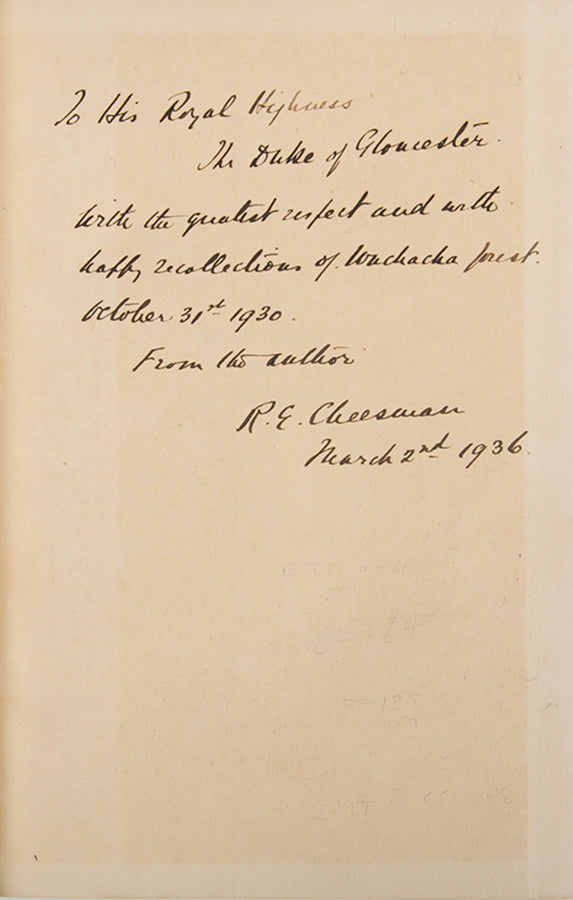 To His Royal Highness
The Duke of Gloucester.
With the greatest respect and with
happy recollections of Wuchacha forest.
October 31st 1930.
From the author
R. E. Cheesman
March 2nd 1936.